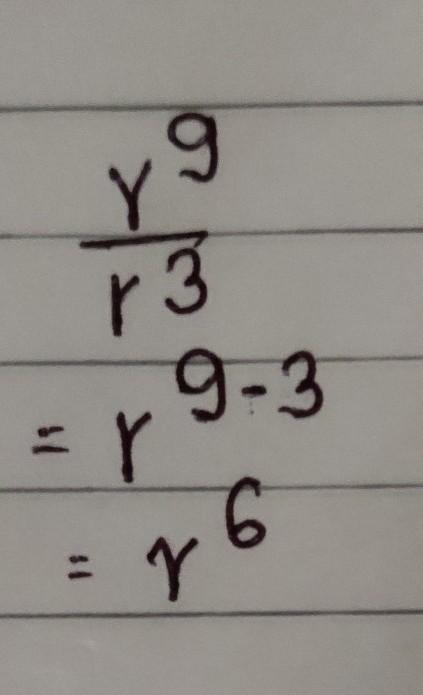 r⁹
r³
= r⁹⁻³
= r⁶